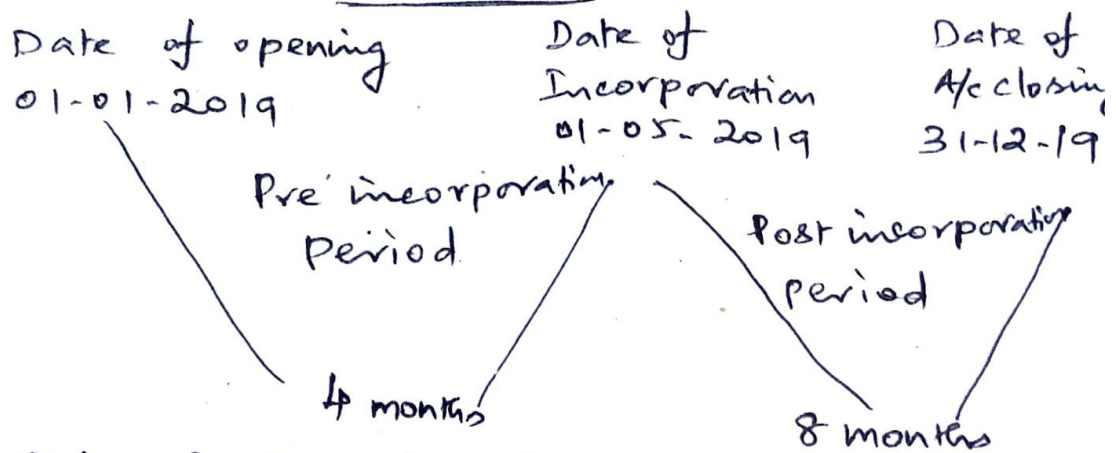 Date of opening
01-01-2019
Date of
Incorporation
01-05-2019
Date of
A/c closing
31-12-19
Pre incorporation
Period
Post incorporation
period
4 months
8 months